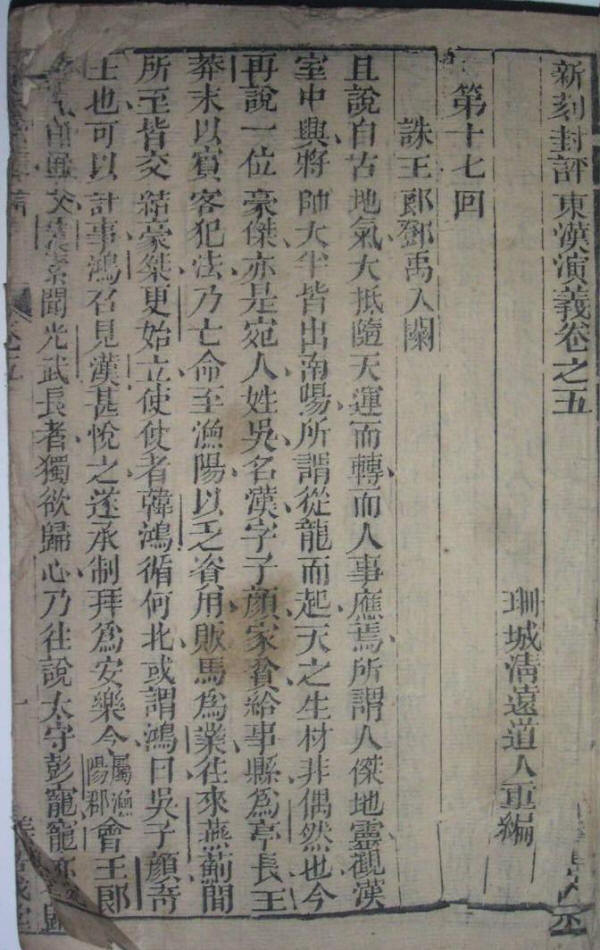 新刻封評東漢演義卷之五
珊城清遠道人重編
第十七回
誅王郎鄧禹入關
且說自古地氣大抵隨天運而轉而人事應焉所謂人傑地靈觀漢
室中興將帥大半皆出南陽所謂從龍而起天之生材非偶然也今
再說一位豪傑亦是宛人姓吳名漢字子顏家貧給事縣為亭長王
莽末以賓客犯法乃亡命至漁陽以乏資用販馬為業往來燕薊間
所至皆交結豪傑更始立使使者韓鴻循何北或謂鴻曰吳子顏奇
士也可以計事鴻召見漢甚悅之遂承制拜為安樂令屬漁陽郡會王郎
漢素聞光武長者獨欲歸心乃往說太守彭寵寵